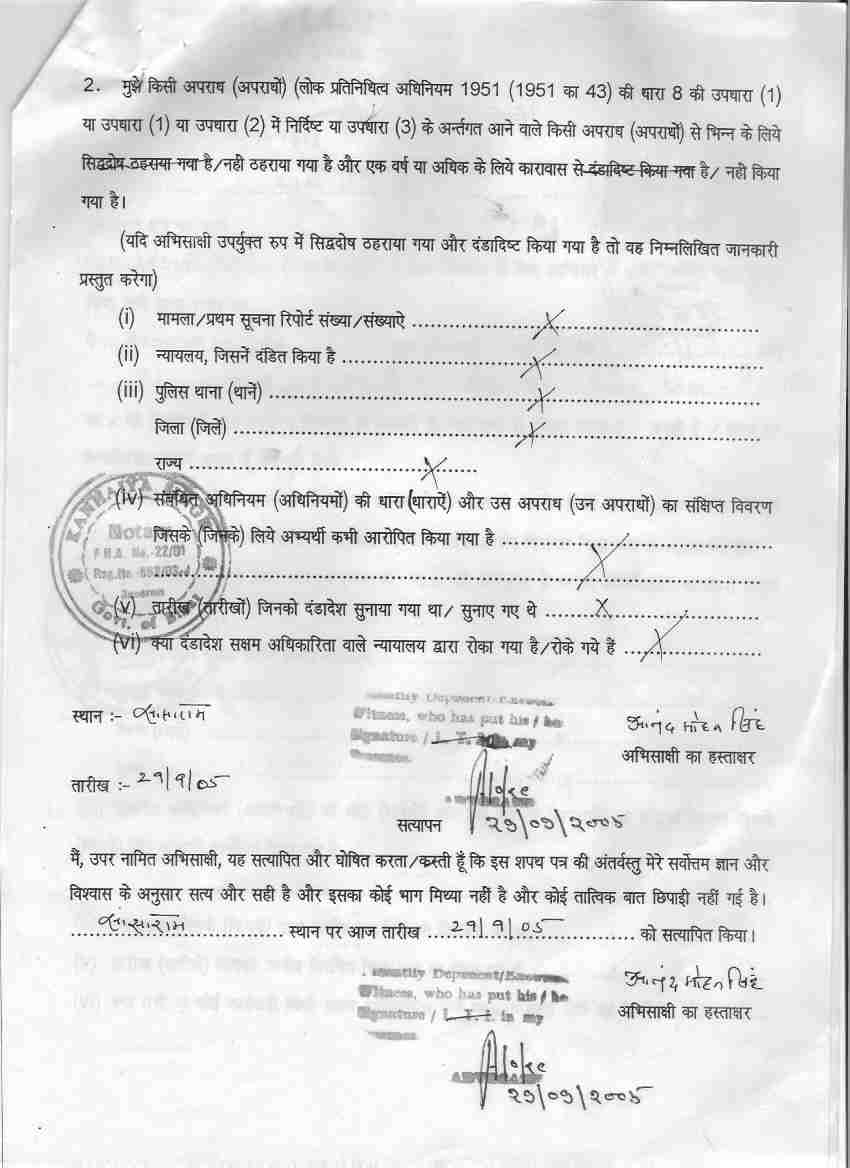 2. मुझे किसी अपराध (अपराधों) (लोक प्रतिनिधित्व अधिनियम 1951 (1951 का 43) की धारा 8 की उपधारा (1)
या उपधारा (1) या उपधारा (2) में निर्दिष्ट या उपधारा (3) के अर्न्तगत आने वाले किसी अपराध (अपराधों) से भिन्न के लिये
सिद्वदोष ठहराया गया है/नही ठहराया गया है और एक वर्ष या अधिक के लिये कारावास से दंडादिष्ट किया गया है/ नही किया
गया है।
(यदि अभिसाक्षी उपर्युक्त रुप में सिद्वदोष ठहराया गया और दंडादिष्ट किया गया है तो वह निम्नलिखित जानकारी
प्रस्तुत करेगा)
(i) मामला/प्रथम सूचना रिपोर्ट संख्या/संख्याऐ .......... X ..........
(ii) न्यायलय, जिसनें दंडित किया है .......... X ..........
(iii) पुलिस थाना (थानें) .......... X ..........
जिला (जिलें) .......... X ..........
राज्य .......... X ..........
(iv) संबंधित अधिनियम (अधिनियमों) की धारा (धाराऐं) और उस अपराध (उन अपराधों) का संक्षिप्त विवरण
जिसके (जिनके) लिये अभ्यर्थी कभी आरोपित किया गया है ..........
.......... X ..........
(v) तारीख (तारीखों) जिनको दंडादेश सुनाया गया था/ सुनाए गए थे .......... X ..........
(vi) क्या दंडादेश सक्षम अधिकारिता वाले न्यायालय द्वारा रोका गया है/रोके गये हैं .......... X ..........
KANHAIYA
Notary
Reg.No.
Govt. of
स्थान :- सासाराम
Witness, who has put his / he
Signature / L. T. I. in my
आनंद मोहन सिंह
अभिसाक्षी का हस्ताक्षर
तारीख :- 29/9/05
सत्यापन
29/09/2005
मैं, उपर नामित अभिसाक्षी, यह सत्यापित और घोषित करता/करती हूँ कि इस शपथ पत्र की अंतर्वस्तु मेरे सर्वोत्तम ज्ञान और
विश्वास के अनुसार सत्य और सही है और इसका कोई भाग मिथ्या नहीं है और कोई तात्विक बात छिपाई नहीं गई है।
सासाराम .......... स्थान पर आज तारीख .......... 29/9/05 .......... को सत्यापित किया।
Deponent/
Witness, who has put his / he
Signature / L. T. I. in my
आनंद मोहन सिंह
अभिसाक्षी का हस्ताक्षर
29/09/2005